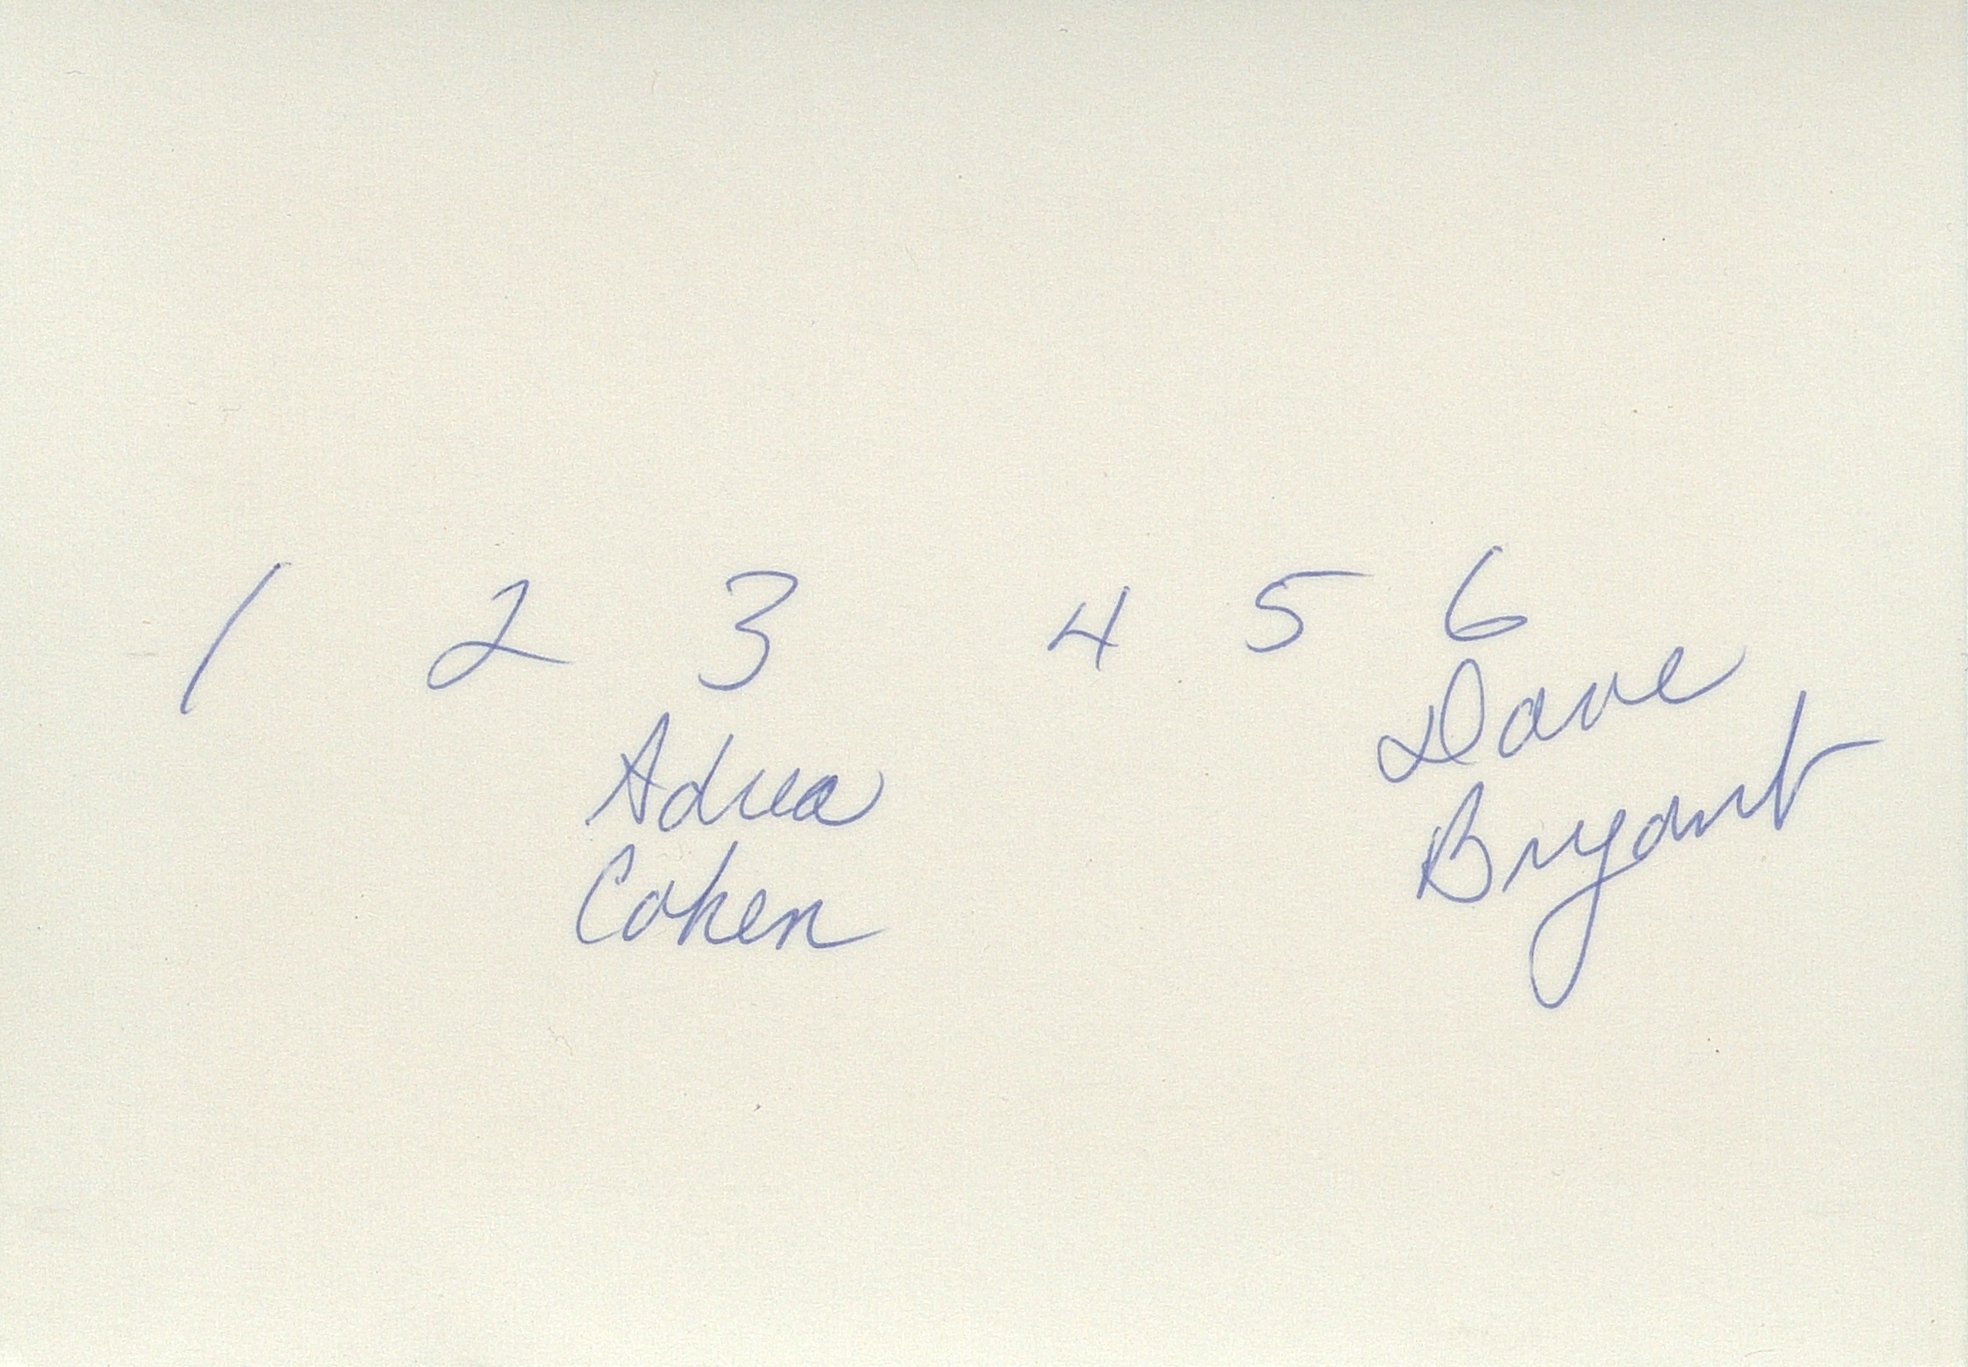 1 2 3 4 5 6
Adrea
Cohen
Dave
Bryant